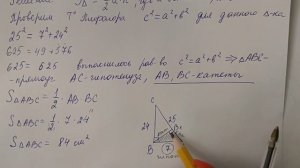 Проверим Т. Пифагора c²=a²+b² для данного Δ-ка
25²=7²+24²
625=49+576
625=625 выполнилось рав-во c²=a²+b² ⇒ ΔABC-
прямоуг. AC-гипотенуза, AB, BC-катеты
SΔABC = 1/2 · AB · BC
SΔABC = 1/2 · 7 · 24
SΔABC = 84 см²
C
24
25
B
7